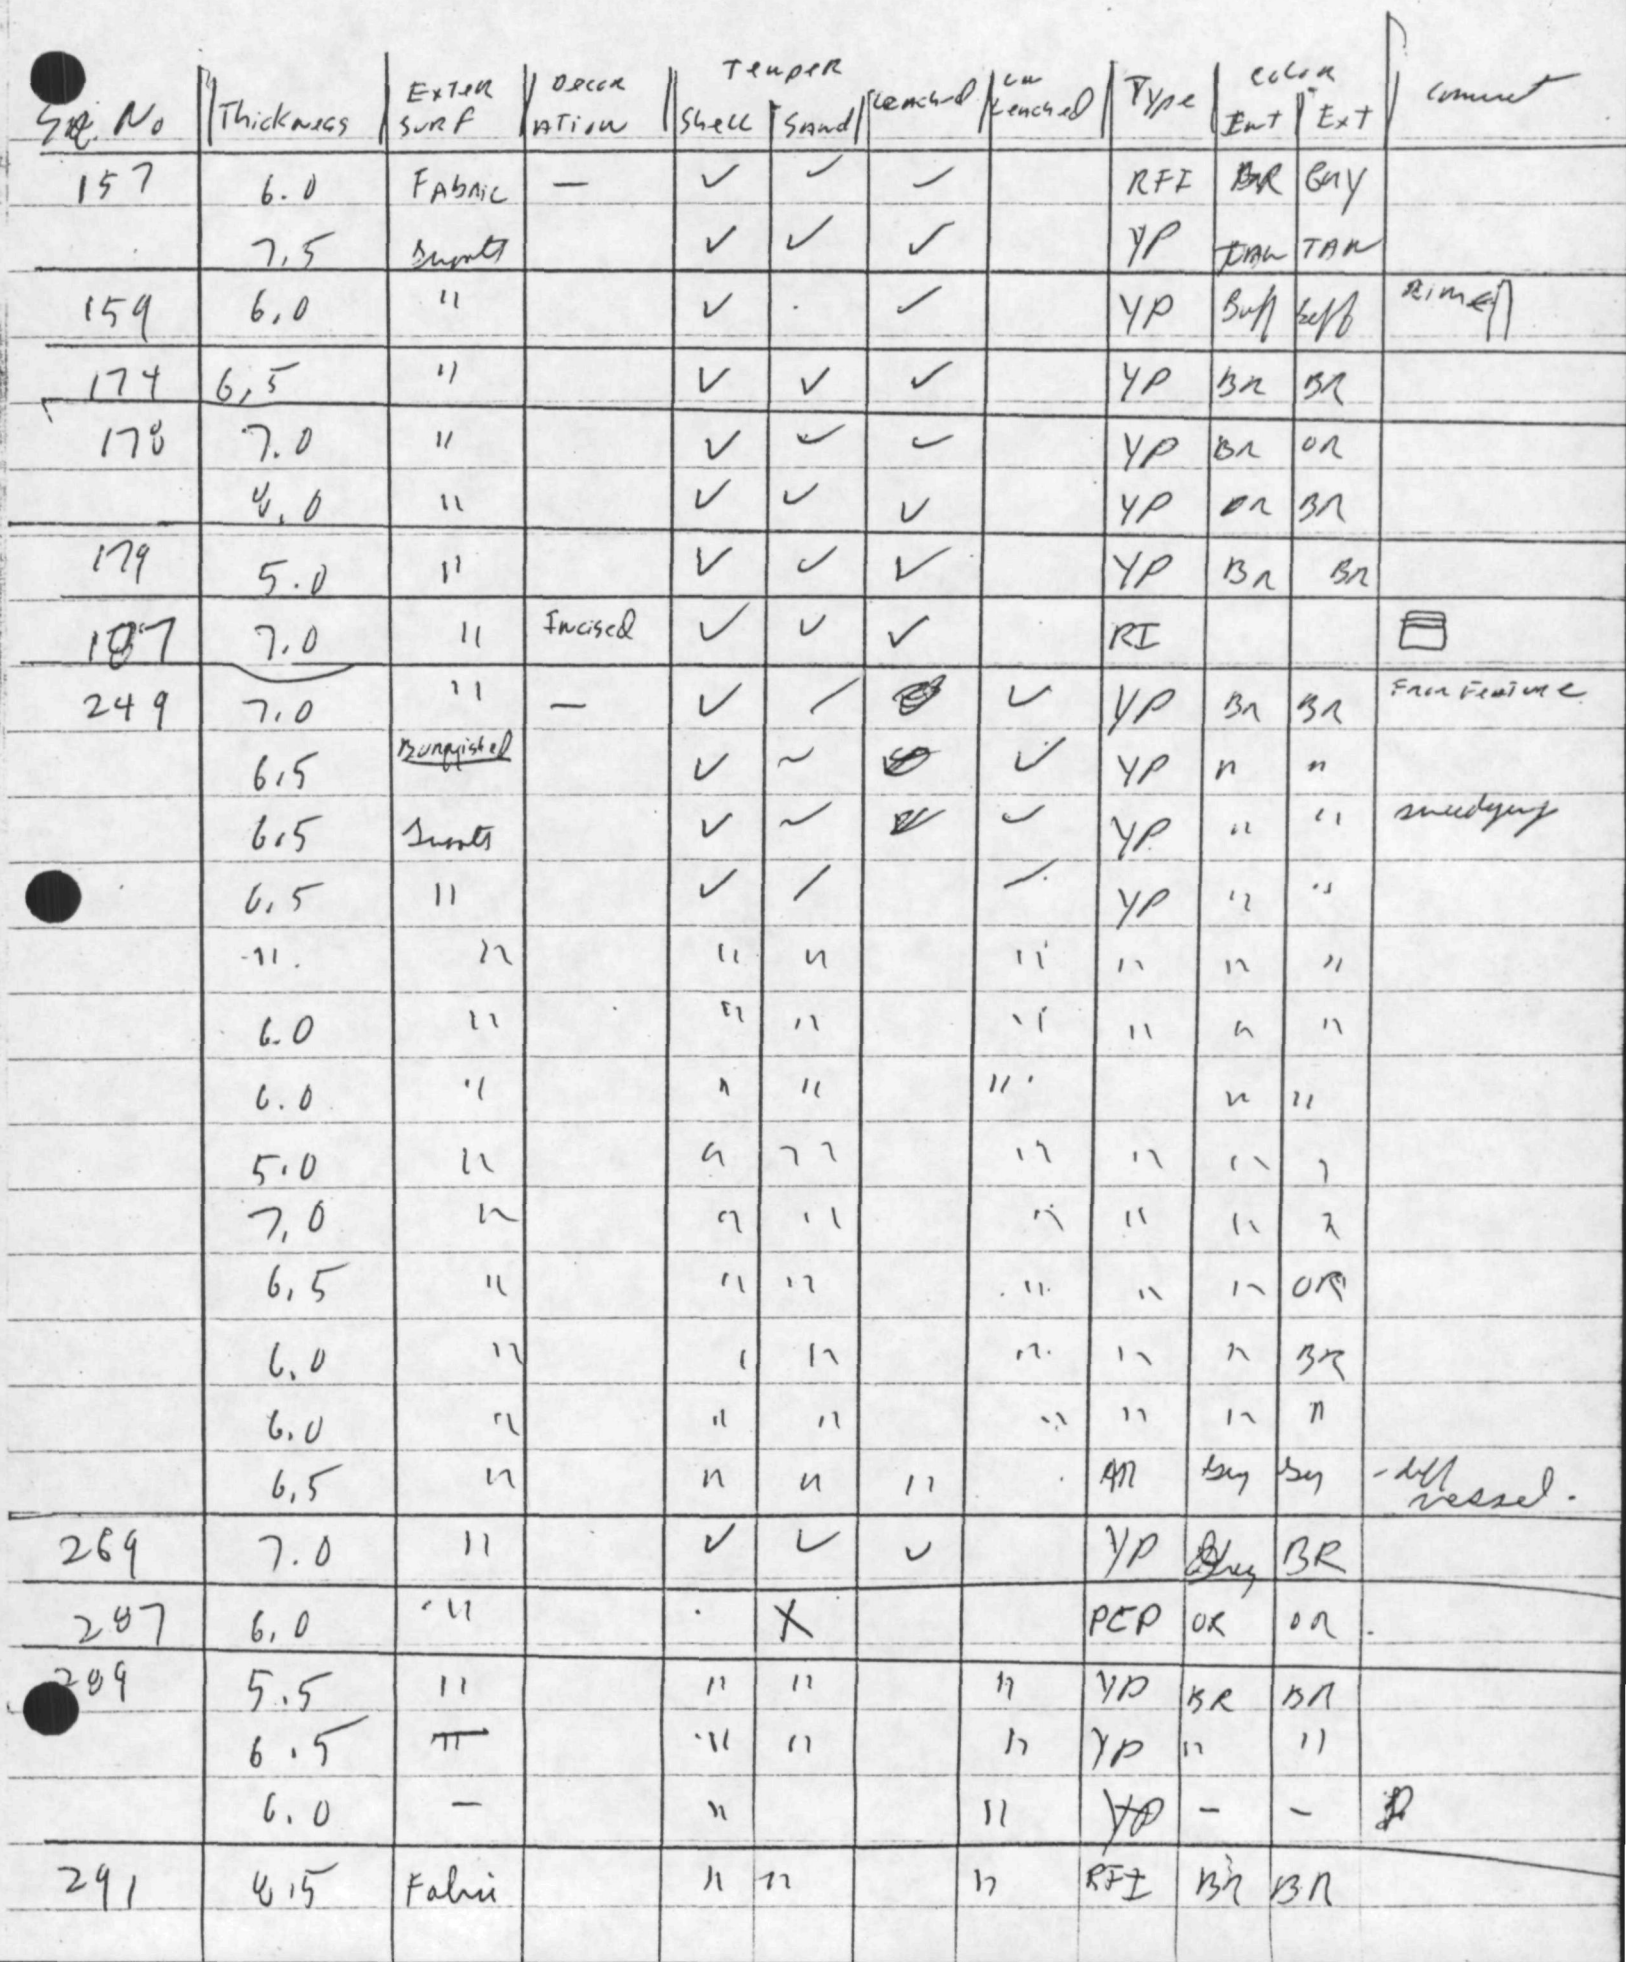 Temper Color
Sq. No Thickness Exter Surf Decor ation Shell Sand Leached un Leached Type Int Ext Comment
157 6.0 Fabric — ✓ ✓ ✓ RFI BR Gry
7.5 Smooth ✓ ✓ ✓ YP TAN TAN
159 6.0 " ✓ ✓ YP Buff buff
174 6.5 " ✓ ✓ ✓ YP BR BR
178 7.0 " ✓ ✓ ✓ YP BR OR
8.0 " ✓ ✓ ✓ YP OR BR
179 5.0 " ✓ ✓ ✓ YP BR BR
187 7.0 " Incised ✓ ✓ ✓ RI
249 7.0 " — ✓ ✓ ✓ YP BR BR From Feature
6.5 Burnished ✓ ✓ ✓ YP " "
6.5 Smooth ✓ ✓ ✓ YP " "
6.5 " ✓ ✓ ✓ YP " "
" " " " " " " "
6.0 " " " " " " "
6.0 " " " " " "
5.0 " " " " " " "
7.0 " " " " " " "
6.5 " " " " " " OR
6.0 " " " " " " BR
6.0 " " " " " " "
6.5 " " " " AR Gry Gry - diff vessel.
269 7.0 " ✓ ✓ ✓ YP Grey BR
287 6.0 " X PCP OR OR
289 5.5 " " " " YP BR BR
6.5 " " " " YP " "
6.0 — " " YP — —
291 8.5 Fabric " " " RFI BR BR